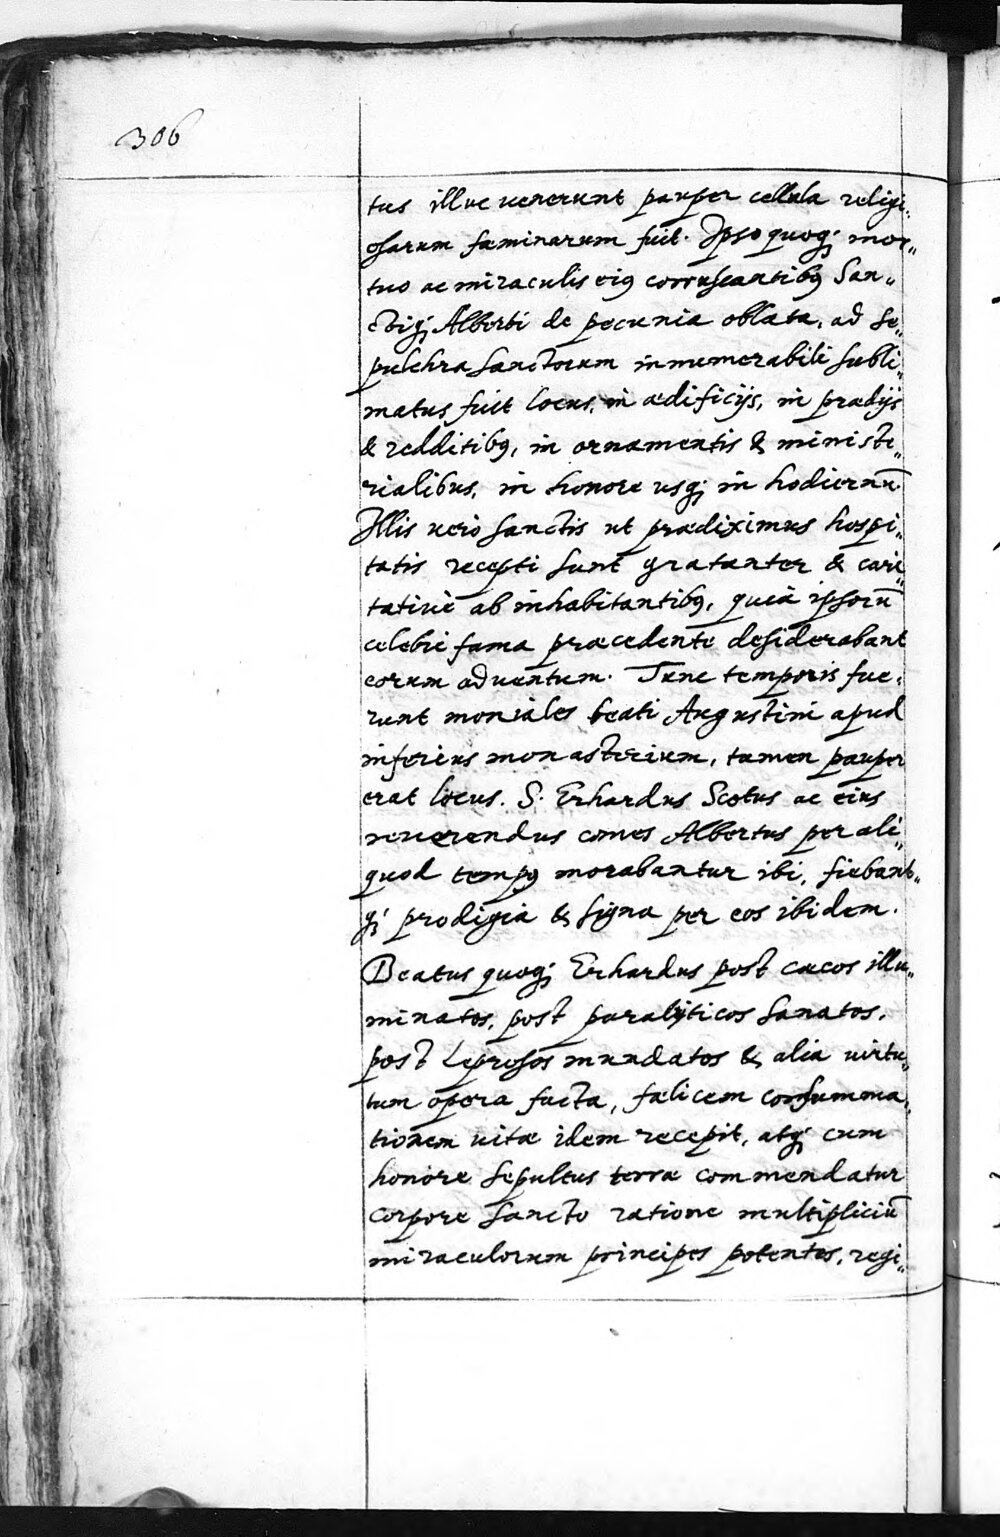 306
tus illuc uenerunt pauper cellula religi„
osarum fœminarum fuit. Ipso quoq; mor„
tuo ac miraculis eiꝰ corruscantibꝰ San„
ctiq; Alberti de pecunia oblata, ad se„
pulchra sanctorum innumerabili subli„
matus fuit locus, in ædificijs, in prædijs
& redditibꝰ, in ornamentis & ministe„
rialibus, in honore usq; in hodiernū
Illis uerò sanctis ut prædiximus hospi„
tatis recepti sunt gratanter & cari„
tatiuè ab inhabitantibꝰ, quià ipsorū
celebri fama præcedente desiderabant
eorum aduentum. Tunc temporis fue„
runt moniales beati Augustini apud
inferius monasterium, tamen pauper
erat locus. S. Erhardus Scotus ac eius
reuerendus comes Albertus per ali„
quod tempꝰ morabantur ibi, fiebant„
q; prodigia & signa per eos ibidem.
Beatus quoq; Erhardus post cæcos illu„
minatos, post paralÿticos sanatos,
post Leprosos mundatos & alia uirtu„
tum opera facta, fælicem consumma„
tionem uitæ idem recepit, atq; cum
honore sepultus terræ commendatur
corpore sancto ratione multipliciū
miraculorum principes potentes, regi„